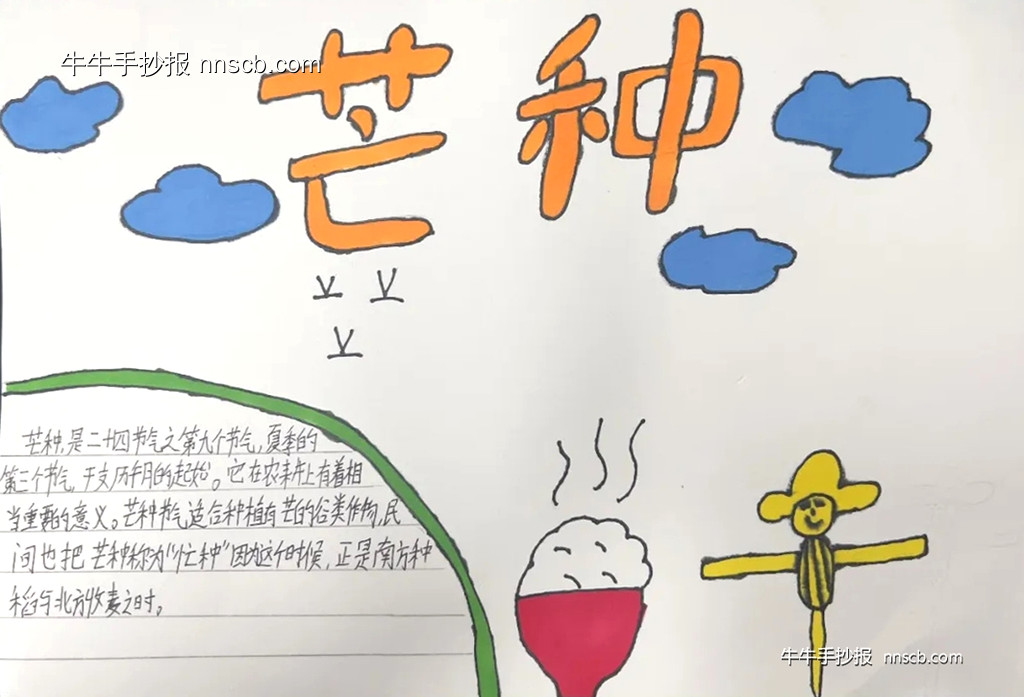 牛牛手抄报 nnscb.com
芒种
芒种,是二十四节气之第九个节气,夏季的
第三个节气,干支历午月的起始。它在农耕上有着相
当重要的意义。芒种节气适合种植有芒的谷类作物,民
间也把芒种称为“忙种”因为这个时候,正是南方种
稻与北方收麦之时。
牛牛手抄报 nnscb.com